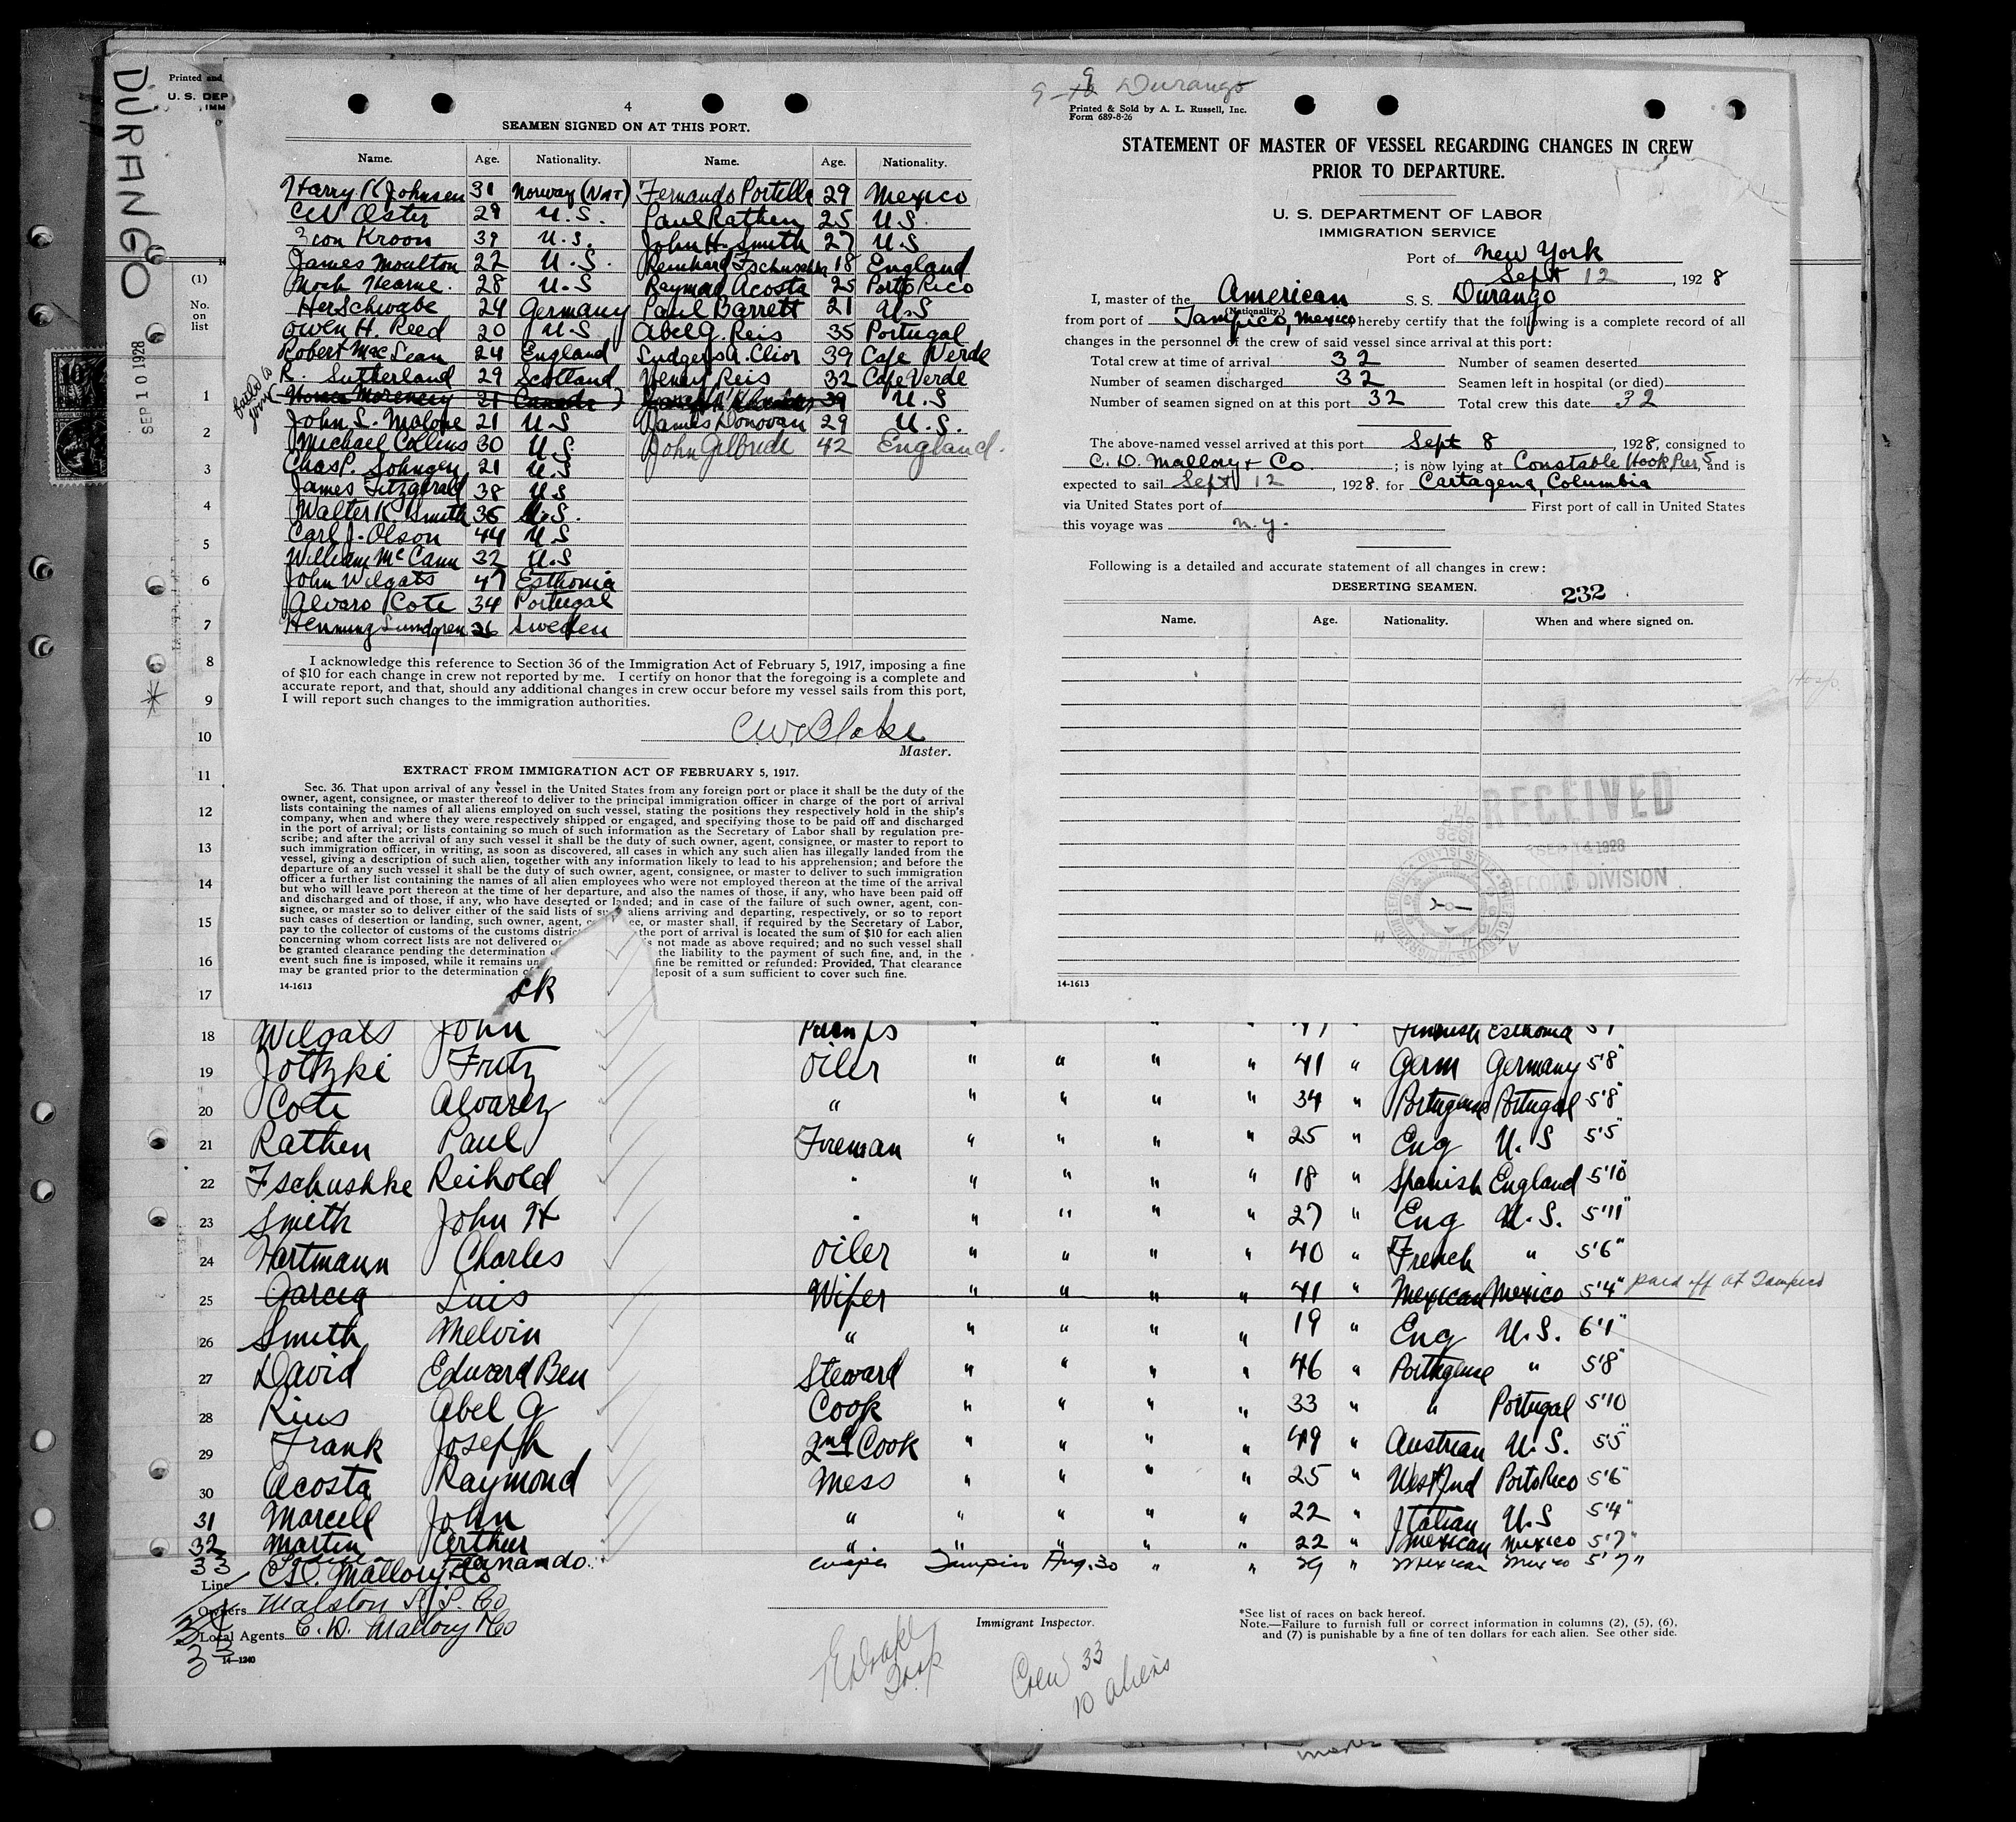 DURANGO
Printed and
U. S. DEP
IMM
(1)
No.
on
list
SEP 10 1928
4
SEAMEN SIGNED ON AT THIS PORT.
Name. Age. Nationality. Name. Age. Nationality.
Harry K Johnsen 31 Norway (NAT) Fernando Portella 29 Mexico
29 U.S. Paul Rathen 25 U.S.
Kroon 39 U.S. John H. Smith 27 U.S
James Moulton 22 U.S. Fschuschke 18 England
Hearne. 28 U.S Raymond Acosta 25 Porto Rico
Her Schwabe 24 Germany Paul Barrett 21 U.S
Owen H. Reed 20 U.S Abel G. Reis 35 Portugal
Robert MacLean 24 England 39 Cape Verde
R. Sutherland 29 Scotland Henry Reis 32 Cape Verde
failed to join 21 Canada 39 U.S
John L. Malone 21 U.S James Donovan 29 U.S.
Michael Collins 30 U.S. John Gilbride 42 England.
Chas P. Sohngen 21 U.S
James Fitzgerald 38 U.S
Walter K. Smith 36 U.S.
Carl J. Olson 44 U.S
William McCann 32 U.S
John Wilgats 47 Esthonia
Alvaro Cote 34 Portugal
Henning Lundgren 26 Sweden
I acknowledge this reference to Section 36 of the Immigration Act of February 5, 1917, imposing a fine
of $10 for each change in crew not reported by me. I certify on honor that the foregoing is a complete and
accurate report, and that, should any additional changes in crew occur before my vessel sails from this port,
I will report such changes to the immigration authorities.
C.W. Blake
Master.
EXTRACT FROM IMMIGRATION ACT OF FEBRUARY 5, 1917.
Sec. 36. That upon arrival of any vessel in the United States from any foreign port or place it shall be the duty of the
owner, agent, consignee, or master thereof to deliver to the principal immigration officer in charge of the port of arrival
lists containing the names of all aliens employed on such vessel, stating the positions they respectively hold in the ship's
company, when and where they were respectively shipped or engaged, and specifying those to be paid off and discharged
in the port of arrival; or lists containing so much of such information as the Secretary of Labor shall by regulation pre-
scribe; and after the arrival of any such vessel it shall be the duty of such owner, agent, consignee, or master to report to
such immigration officer, in writing, as soon as discovered, all cases in which any such alien has illegally landed from the
vessel, giving a description of such alien, together with any information likely to lead to his apprehension; and before the
departure of any such vessel it shall be the duty of such owner, agent, consignee, or master to deliver to such immigration
officer a further list containing the names of all alien employees who were not employed thereon at the time of the arrival
but who will leave port thereon at the time of her departure, and also the names of those, if any, who have been paid off
and discharged and of those, if any, who have deserted or landed; and in case of the failure of such owner, agent, con-
signee, or master so to deliver either of the said lists of such aliens arriving and departing, respectively, or so to report
such cases of desertion or landing, such owner, agent, ee, or master shall, if required by the Secretary of Labor,
pay to the collector of customs of the customs distric the port of arrival is located the sum of $10 for each alien
concerning whom correct lists are not delivered or is not made as above required; and no such vessel shall
be granted clearance pending the determination the liability to the payment of such fine, and, in the
event such fine is imposed, while it remains un fine be remitted or refunded: Provided, That clearance
may be granted prior to the determination deposit of a sum sufficient to cover such fine.
14-1613
9 Durango
Printed & Sold by A. L. Russell, Inc.
Form 689-8-26
STATEMENT OF MASTER OF VESSEL REGARDING CHANGES IN CREW
PRIOR TO DEPARTURE.
U. S. DEPARTMENT OF LABOR
IMMIGRATION SERVICE
Port of New York
Sept 12, 1928
I, master of the American S. S. Durango
(Nationality.)
from port of Tampico, Mexico, hereby certify that the following is a complete record of all
changes in the personnel of the crew of said vessel since arrival at this port:
Total crew at time of arrival 32 Number of seamen deserted
Number of seamen discharged 32 Seamen left in hospital (or died)
Number of seamen signed on at this port 32 Total crew this date 32
The above-named vessel arrived at this port Sept 8, 1928, consigned to
C. D. Mallory & Co.; is now lying at Constable Hook Pier 5 and is
expected to sail Sept 12, 1928. for Cartagena, Columbia
via United States port of First port of call in United States
this voyage was N.Y.
Following is a detailed and accurate statement of all changes in crew:
DESERTING SEAMEN. 232
Name. Age. Nationality. When and where signed on.
RECEIVED
SEP 14 1928
RECORD DIVISION
14-1613
Hosp.
1
2
3
4
5
6
7
8
9
10
11
12
13
14
15
16
17
18 Wilgats John Pumps 47 " Finnish Esthonia 5'7
19 Jotzki Fritz Oiler " " " " 41 " Germ Germany 5'8"
20 Cote Alvarez " " " " " 34 " Portuguese Portugal 5'8"
21 Rathen Paul Fireman " " " " 25 " Eng U.S 5'5"
22 Fschushke Reihold " " " " " 18 " Spanish England 5'10
23 Smith John H " " " " " 27 " Eng U.S. 5'11"
24 Hartmann Charles Oiler " " " " 40 " French " 5'6"
25 Garcia Luis Wiper " " " " 41 " Mexican Mexico 5'4" paid off at Tampico
26 Smith Melvin " " " " " 19 " Eng U.S. 6'1"
27 David Edward Ben Steward " " " " 46 " Portuguese " 5'8"
28 Rius Abel G Cook " " " " 33 " " Portugal 5'10
29 Frank Joseph 2nd Cook " " " " 49 " Austrian U.S. 5'5"
30 Acosta Raymond Mess " " " " 25 " West Ind Porto Rico 5'6"
31 Marcell John " " " " " 22 " Italian U.S 5'4"
32 Martin Arthur " " " " " 22 " Mexican Mexico 5'7"
33 Fernando Wiper Tampico Aug. 30 " " 29 " Mexican Mexico 5'7"
Line C.D. Mallory & Co
Owners Malston S.S. Co
Local Agents C. D. Mallory & Co
14-1240
Immigrant Inspector.
Crew 33
10 aliens
*See list of races on back hereof.
Note.—Failure to furnish full or correct information in columns (2), (5), (6),
and (7) is punishable by a fine of ten dollars for each alien. See other side.